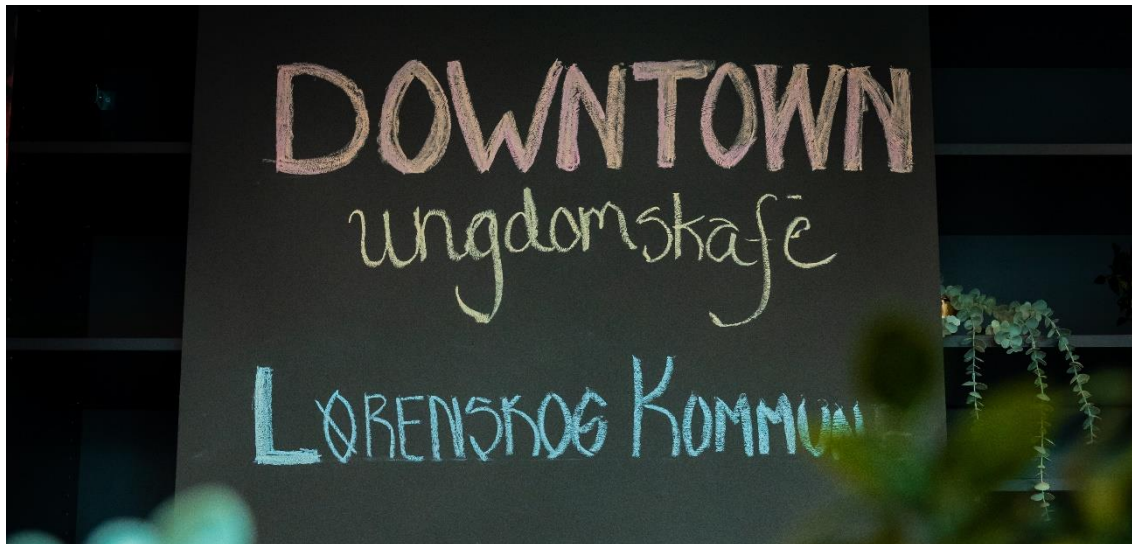 DOWNTOWN
ungdomskafē
LØRENSKOG KOMMUN